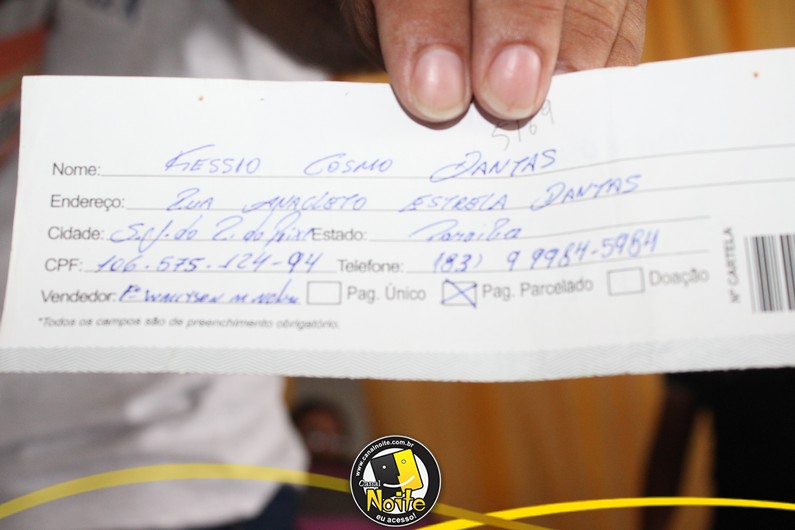 5169
Nome: KESSIO COSMO DANTAS
Endereço: RUA ANACLETO ESTRELA DANTAS
Cidade: S.J. do R. do Peixe Estado: Paraíba
CPF: 106.575.124-94 Telefone: (83) 9 9984-5984
Vendedor: Fº WALLYSON M. Pag. Único Pag. Parcelado Doação
*Todos os campos são de preenchimento obrigatório.
Nº CARTELA
www.canalnoite.com.br
Canal
NOITE
eu acesso!